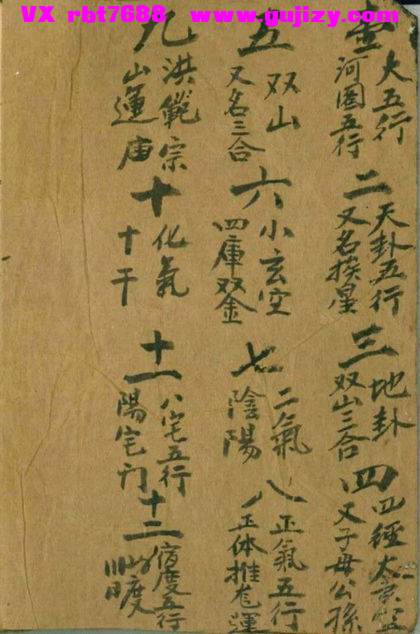 VX rbt7688 www.gujizy.com
壹 大五行
河圖五行
二 天卦五行
又名挨星
三 地卦
双山三合
四 四經大玄空
又子母公孫
五 双山
又名三合
六 小玄空
四庫双金
七 二氣
陰陽
八 正氣五行
正体推運
九 洪範宗
山運
十 化氣
十干
十一 八宅五行
陽宅门
十二 宿度五行
度